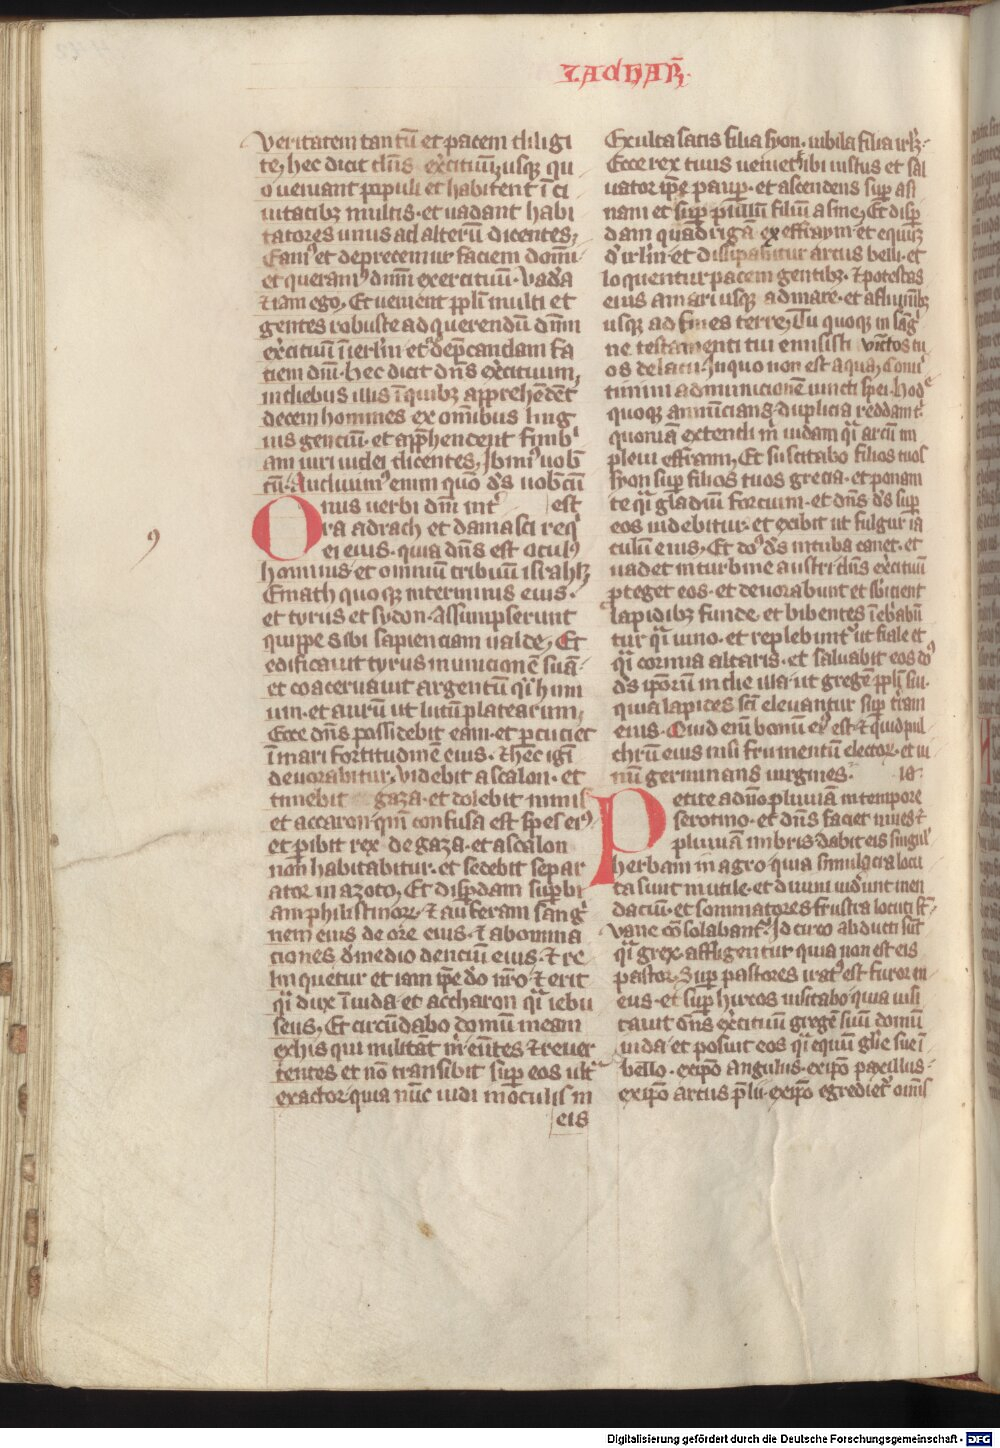 ZACHAR̄
veritatem tantū et pacem diligi
te, hec dicit dn̄s exercituū, usq̄ quo
ueniant populi et habitent ī ci
uitatibꝫ multis · et uadant habi
tatores unus ad alterū dicentes,
Eamꝰ et deprecemur faciem domī
et queramꝰ dn̄m exercituū · Vada
etiam ego, Et uenient ppl̄i multi et
gentes robuste ad querendū dn̄m
exercituū ī ierl̄m et depcandam fa
ciem dn̄i · hec dicit dn̄s exercituum,
in diebus illis ī quibꝫ apprehēdēt
decem homines ex om̄ibus ling
uis genciū · et apphendent fimbʳ
am uiri iudei dicentes, Ibimꝰ uob̄
cū · Audiuimꝰ enim quō dꝰs uob̄cū
Onus uerbi dn̄i in tʳ est
ra adrach et damasci req
ei eius · quia dn̄s est oculꝰ
hominis et omniū tribuū israhel,
Emath quoq̄ in terminis eius ·
et tyrus et sydon · Assumpserunt
quippe sibi sapienciam ualde, Et
edificauit tyrus municionē suā ·
et coaceruauit argentū qͣi hum
um · et aurū ut lutū platearum,
Ecce dn̄s possidebit eam · et p̄cuciet
ī mari fortitudinē eius · et hec igī
deuorabitur · Videbit ascalon · et
timebit gaza · et dolebit nimis
et accaron · qm̄ confusa est spes eiꝰ
et pibit rex de gaza · et ascalon
non habitabitur · et sedebit separ
ator in azoto, Et disp̄dam sup̄bi
am philistinoꝝ · et auferam sangͥ
nem eius de ore eius · et abomina
ciones de medio denciū eius · et re
linquetur et iam ip̄e deo nr̄o · et erit
qͣi dux ī iuda · et accharon qͣi iebu
seus, Et circūdabo domū meam
ex his qui militāt m̄ eūtes et reuer
tentes et nō transibit sup̄ eos ultͣ
exactor · quia nūc uidi in oculis m
eis
9
Exulta satis filia syon · iubila filia irl̄m ·
Ecce rex tuus ueniet tibi iustus et sal
uator ip̄e paup̄ · et ascendens sup̄ asi
nam et sup̄ pullū filiū asine, Et disp̄
dam quadrigā ex effraym · et equū
de irl̄m · et dissipabitur arcus belli · et
loquentur pacem gentibꝫ · et potestas
eius a mari usq̄ ad mare · et a fluminibꝫ
usq̄ ad fines terre, Tu quoq̄ in sāgͥ
ne testamenti tui emisisti vīctos tu
os de lacu · in quo non est aqua, Conuer
timini ad municionē uincti spei · hodie
quoq̄ annūcians · duplicia reddam tͥ
quoniā extendi m̄ iudam qͣi arcū im
pleui effraim, Et suscitabo filios tuos
syon sup̄ filios tuos grecia · et ponam
te qͣi gladiū forcium · et dn̄s dꝰs sup̄
eos uidebitur · et exibit ut fulgur ia
culū eius, Et dn̄s dꝰs in tuba canet · et
uadet in turbine austri · dn̄s exercituū
p̄teget eos · et deuorabunt et sb̄icient
lapidibꝫ funde · et bibentes īebͥabū
tur qͣi uino · et replebuntͬ ut fiale et
qͣi cornua altaris · et saluabit eos dn̄s
dꝰs ip̄orū in die illa · ut gregē ppl̄i sui ·
quia lapides sc̄i eleuantur sup̄ tͬram
eius · Quid enī bonū eiꝰ est · et quid pul
chrū eius nisi frumentū electoꝝ · et ui
nū germinans uirgines · 10
Petite a dn̄o pluuiā in tempore
serotino · et dn̄s faciet niues et
pluuiā imbris dabit eis singul̄
herbam in agro · quia simulacra locu
ta sunt inutile · et diuini uiderunt men
daciū · et somniatores frustra locuti st̄ ·
Vane consolabantͬ · Idcirco abducti sūt
qͣi grex · affligentur quia non est eis
pastor · Sup̄ pastores iratꝰ est furor m
eus · et sup̄ hircos uisitabo · quia uisi
tauit dn̄s exercituū gregē suū domū
iuda · et posuit eos qͣi equū glīe sue ī
bello · ex ip̄o angulus · ex ip̄o paxillus ·
ex ip̄o arcus p̄lii · ex ip̄o egredietͬ om̄is
Digitalisierung gefördert durch die Deutsche Forschungsgemeinschaft - DFG